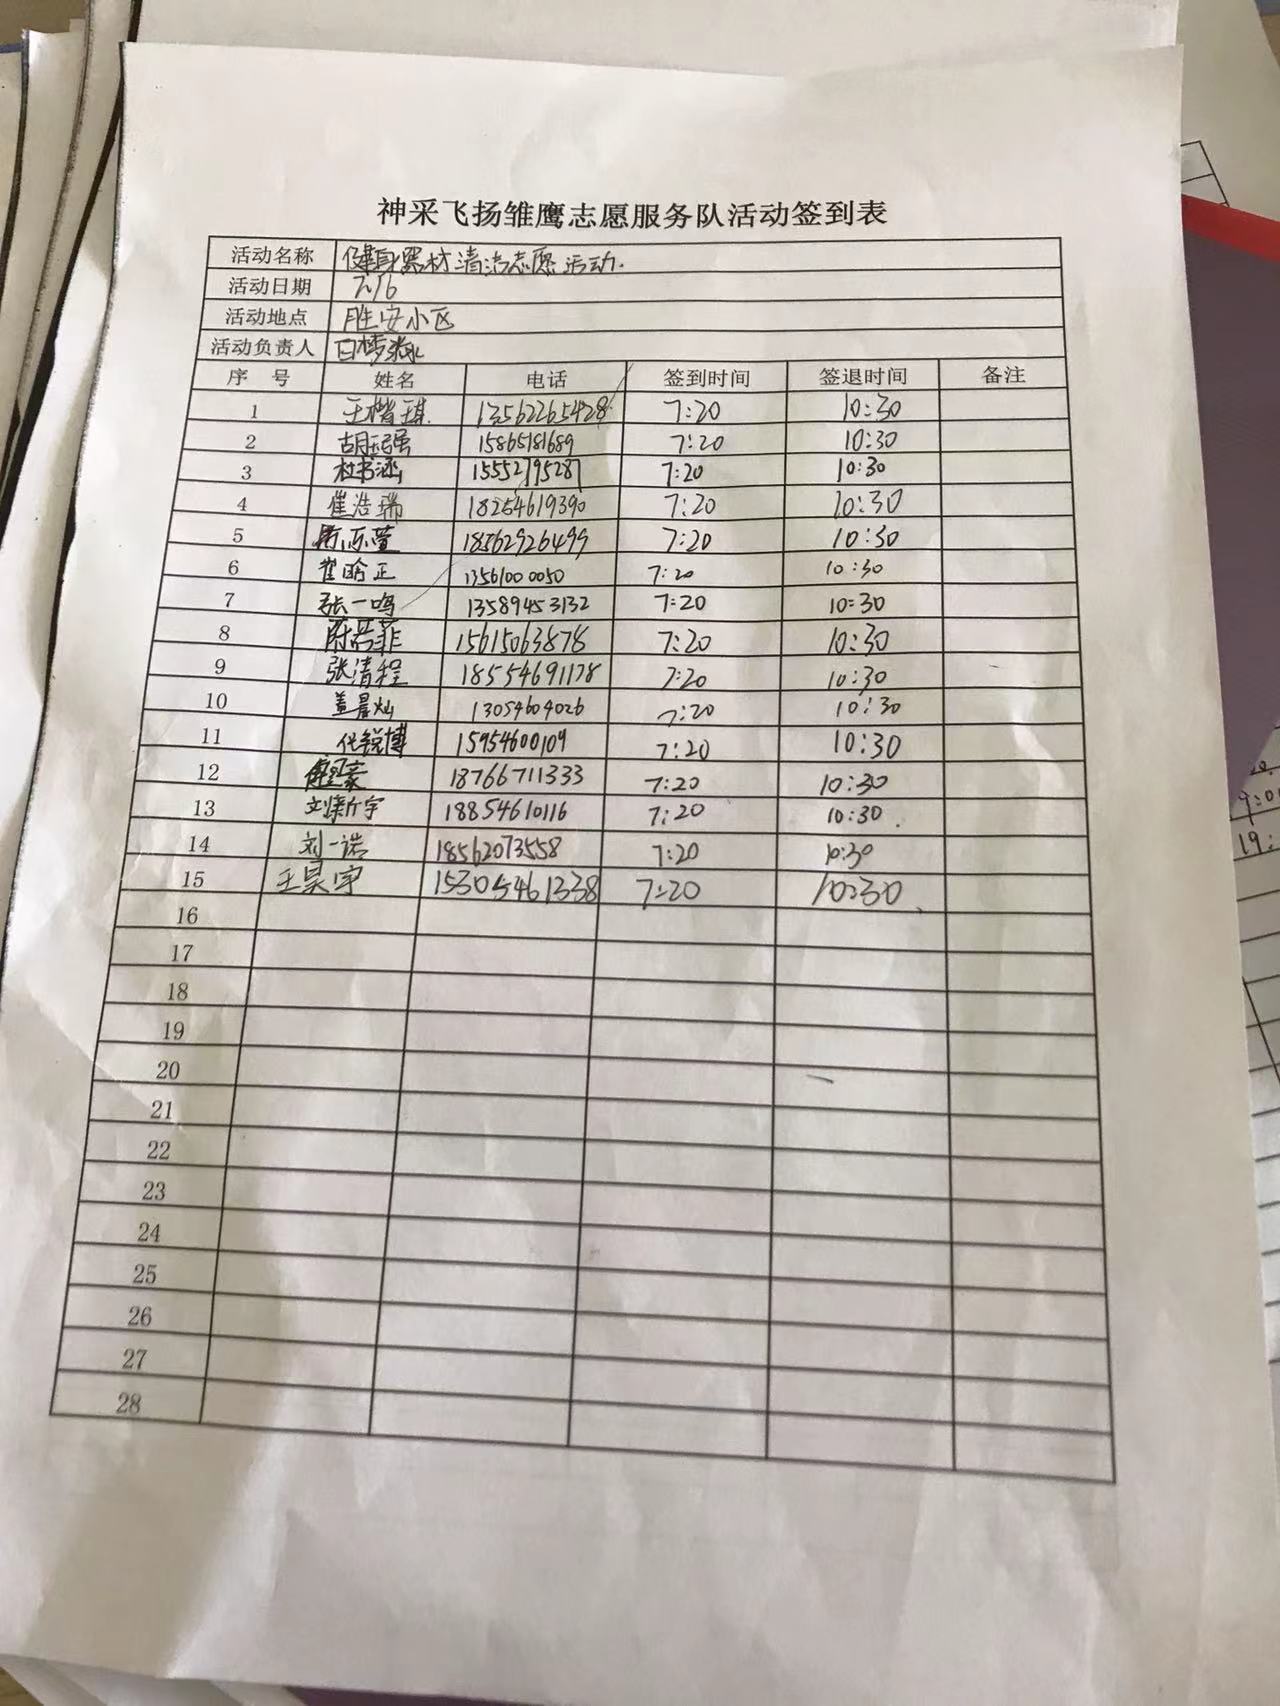 神采飞扬雏鹰志愿服务队活动签到表
活动名称 健身器材清洁志愿活动.
活动日期 7/16
活动地点 胜安小区
活动负责人 白梦
序 号 姓名 电话 签到时间 签退时间 备注
1 王楷琪 13562265428 7:20 10:30
2 胡钰强 15865181689 7:20 10:30
3 杜书涵 15552795287 7:20 10:30
4 崔浩瑞 18254619390 7:20 10:30
5 18562926499 7:20 10:30
6 崔晗正 13561000050 7:20 10:30
7 张一鸣 13589453132 7:20 10:30
8 15615063878 7:20 10:30
9 张清程 18554691178 7:20 10:30
10 盖晨灿 13054604026 7:20 10:30
11 代锐博 15954600109 7:20 10:30
12 豪 18766711333 7:20 10:30
13 刘新宇 18854610116 7:20 10:30.
14 刘一诺 18562073558 7:20 10:30
15 王昊宇 15305461338 7:20 10:30
16
17
18
19
20
21
22
23
24
25
26
27
28